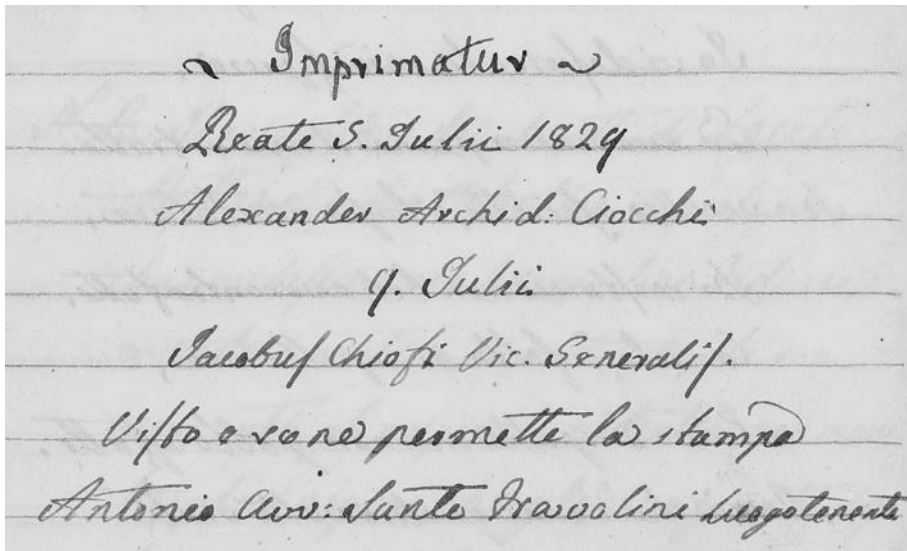 ~ Imprimatur ~
Reate 5. Julii 1829
Alexander Archid: Ciocchi
9. Julii
Jacobus Chiofi Vic. Generalis.
Visto e se ne permette la stampa
Antonio Avv: Sante Travolini Luogotenente